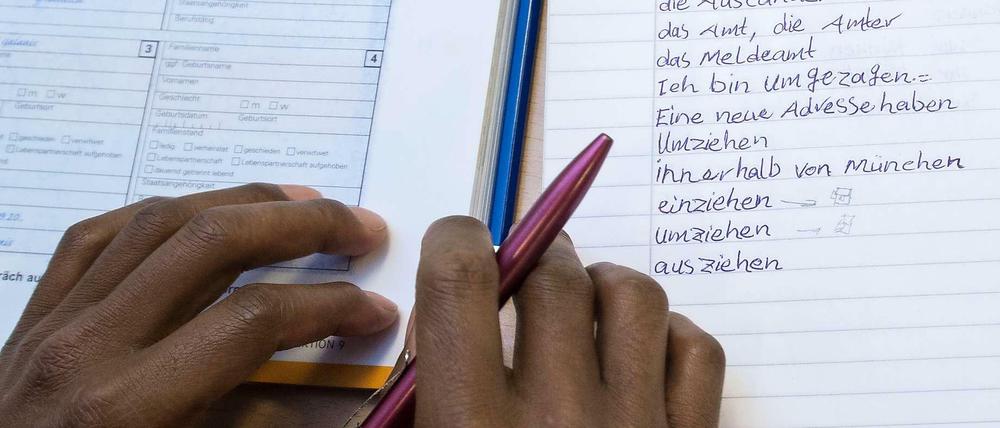 Staatsangehörigkeit
Berufstätig
3
Familienname
4
ggf. Geburtsname
Vornamen
m w
Geschlecht
m w
Geburtsort
Geburtsdatum
Geburtsort
Familienstand
geschieden verwitwet
ledig verheiratet geschieden verwitwet
Lebenspartnerschaft aufgehoben
Lebenspartnerschaft Lebenspartnerschaft aufgehoben
dauernd getrennt lebend
Staatsangehörigkeit
KTION 9
die
das Amt, die Ämter
das Meldeamt
Ich bin umgezogen.=
Eine neue Adresse haben
Umziehen
innerhalb von München
einziehen
umziehen
ausziehen